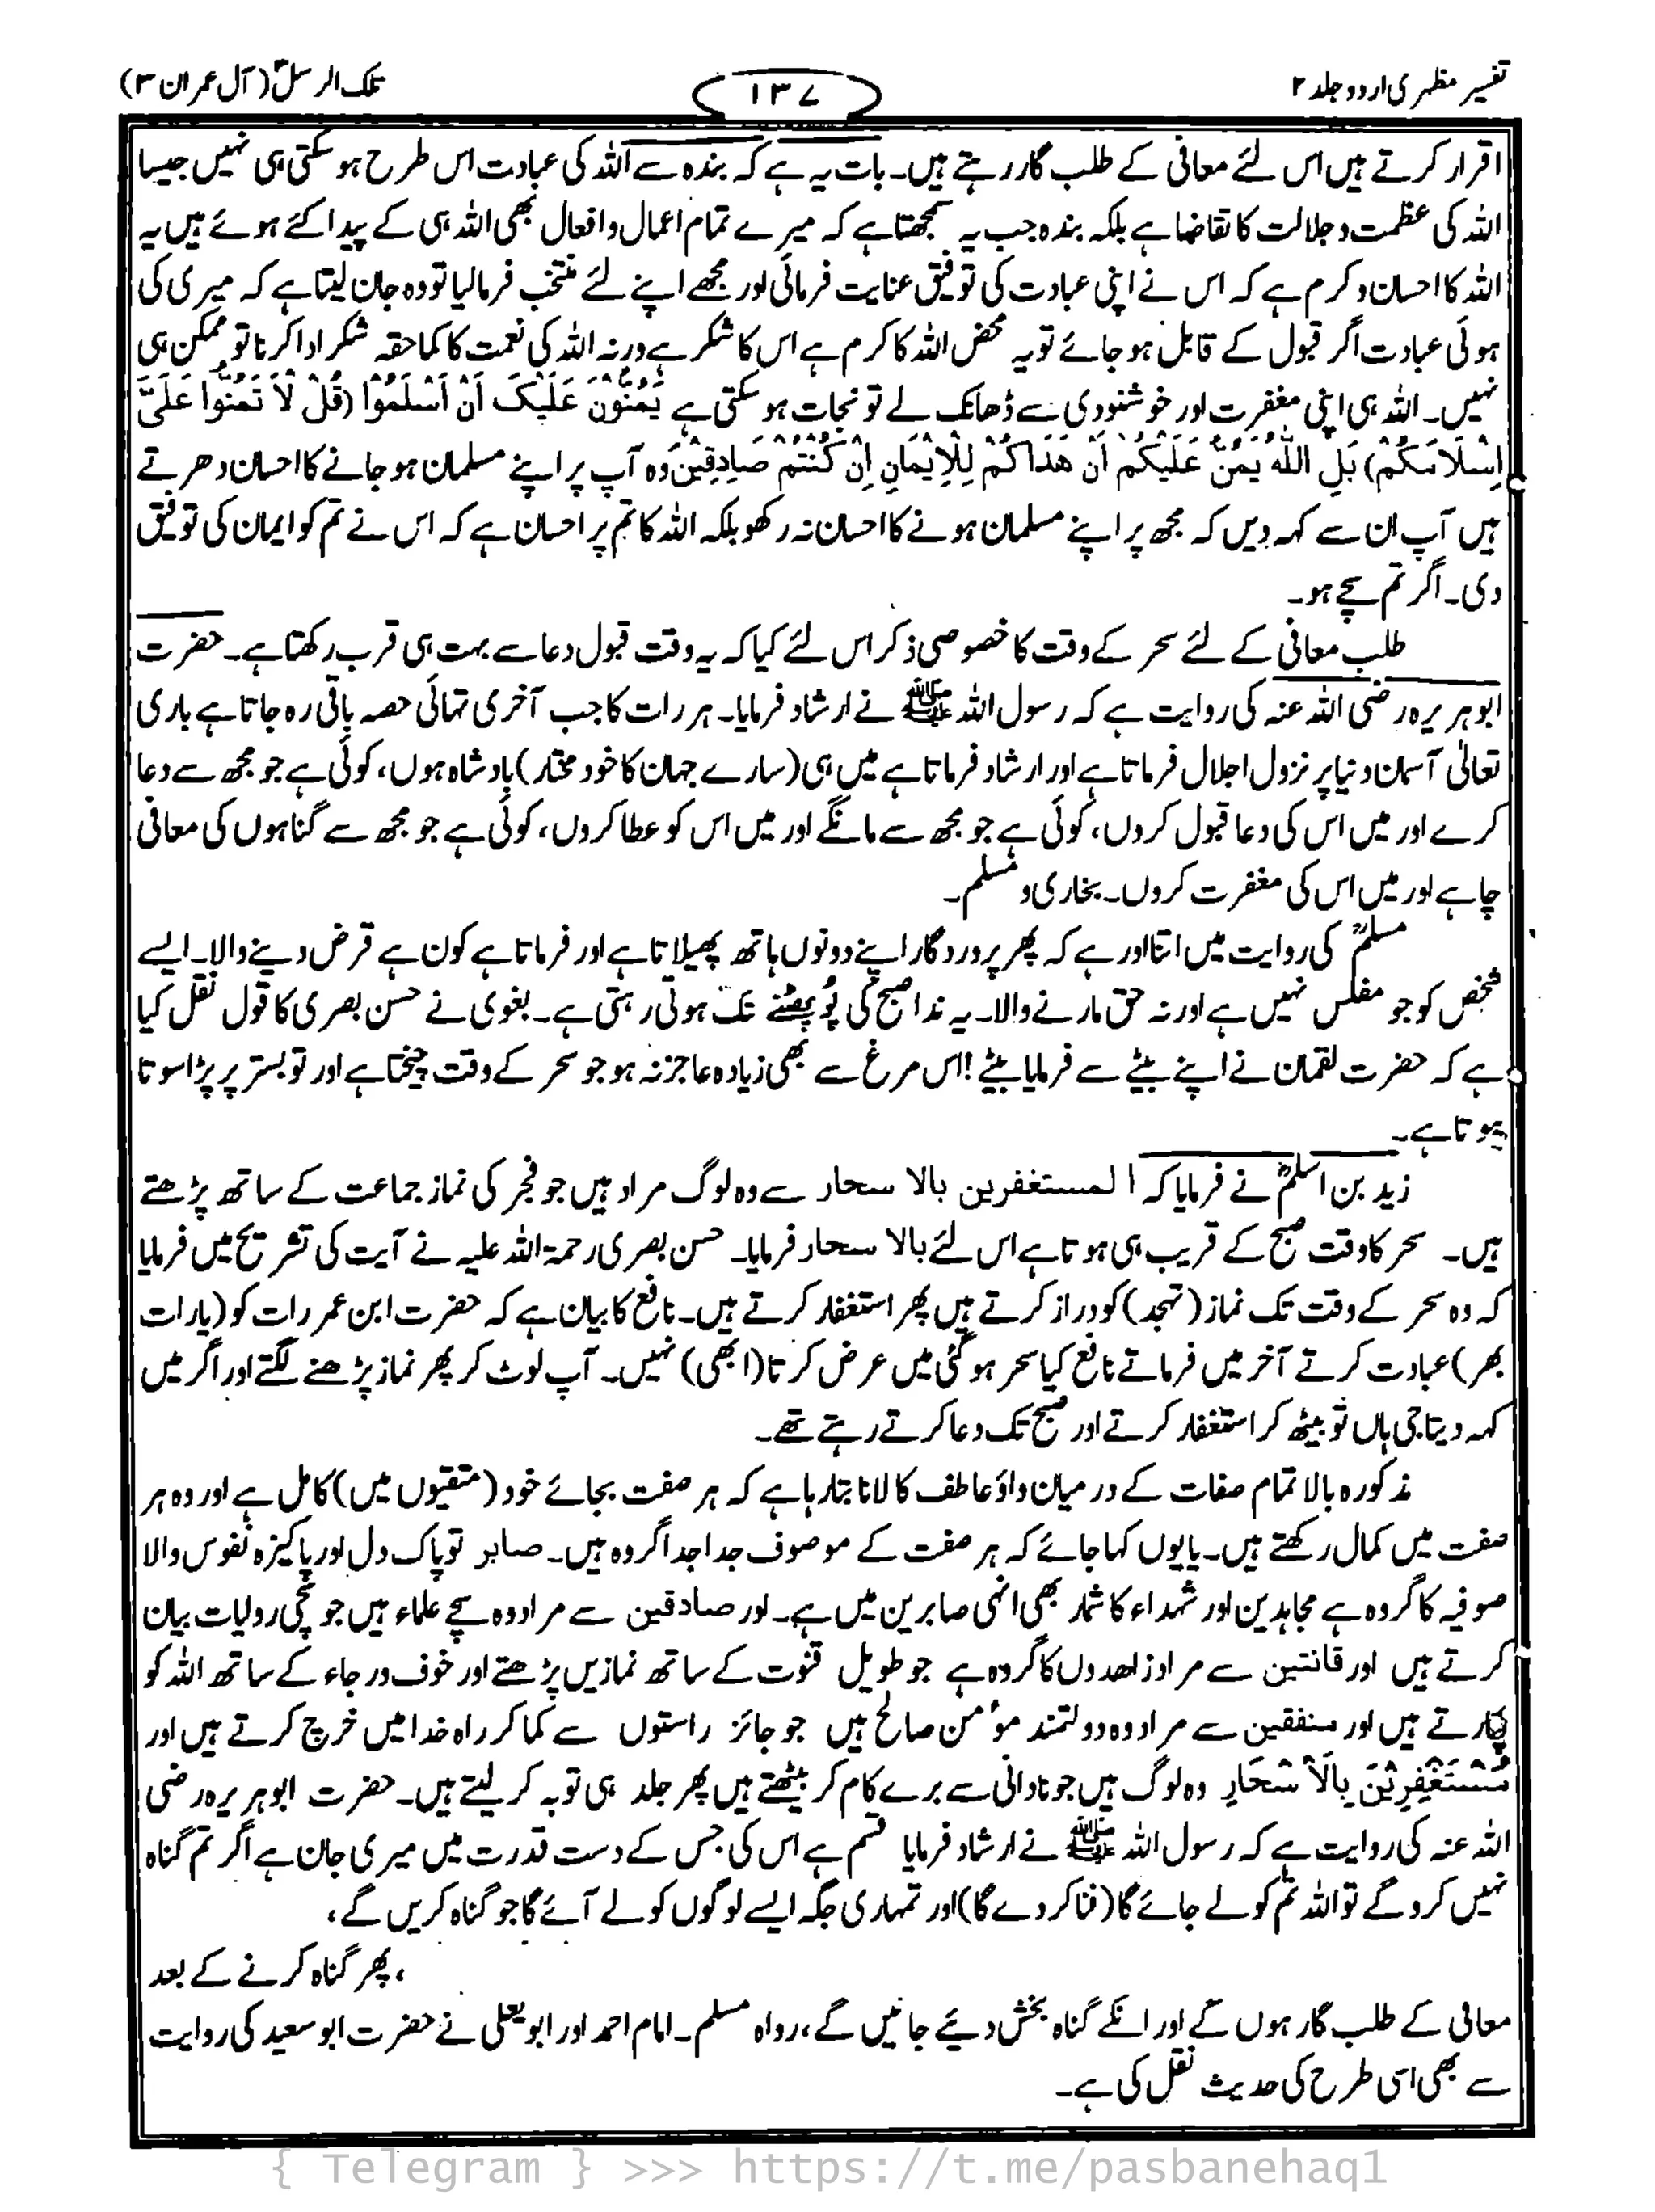 تفسیر مظہری اردو جلد ۲
۱۳۷
تلک الرسل (آل عمران ۳)
اقرار کرتے ہیں اس لئے معافی کے طلب گار رہتے ہیں۔ بات یہ ہے کہ بندہ سے اللہ کی عبادت اس طرح ہو سکتی ہی نہیں جیسا
اللہ کی عظمت و جلالت کا تقاضا ہے بلکہ بندہ جب یہ سمجھتا ہے کہ میرے تمام اعمال و افعال بھی اللہ ہی کے پیدا کئے ہوئے ہیں یہ
اللہ کا احسان و کرم ہے کہ اس نے اپنی عبادت کی توفیق عنایت فرمائی اور مجھے اپنے لئے منتخب فرمالیا تو وہ جان لیتا ہے کہ میری کی
ہوئی عبادت اگر قبول کے قابل ہو جائے تو یہ محض اللہ کا کرم ہے اس کا شکر ہے ورنہ اللہ کی نعمت کا کما حقہ شکر ادا کرنا تو ممکن ہی
نہیں۔ اللہ ہی اپنی مغفرت اور خوشنودی سے ڈھانک لے تو نجات ہو سکتی ہے یَمُنُّوْنَ عَلَیْکَ اَنْ اَسْلَمُوْا (قُلْ لَّا تَمُنُّوا عَلَیَّ
اِسْلَامَکُمْ) بَلِ اللّٰهُ یَمُنُّ عَلَیْکُمْ اَنْ هَدَاکُمْ لِلْاِیْمَانِ اِنْ کُنْتُمْ صَادِقِیْنَ وہ آپ پر اپنے مسلمان ہو جانے کا احسان دھرتے
ہیں آپ ان سے کہہ دیں کہ مجھ پر اپنے مسلمان ہونے کا احسان نہ رکھو بلکہ اللہ کا تم پر احسان ہے کہ اس نے تم کو ایمان کی توفیق
دی۔ اگر تم سچے ہو۔
طلب معافی کے لئے سحر کے وقت کا خصوصی ذکر اس لئے کیا کہ یہ وقت قبول دعا سے بہت ہی قرب رکھتا ہے۔ حضرت
ابوہریرہ رضی اللہ عنہ کی روایت ہے کہ رسول اللہ ﷺ نے ارشاد فرمایا۔ ہر رات کا جب آخری تہائی حصہ باقی رہ جاتا ہے باری
تعالیٰ آسمان دنیا پر نزول اجلال فرماتا ہے اور ارشاد فرماتا ہے میں ہی (سارے جہان کا خود مختار) بادشاہ ہوں، کوئی ہے جو مجھ سے دعا
کرے اور میں اس کی دعا قبول کروں، کوئی ہے جو مجھ سے مانگے اور میں اس کو عطا کروں، کوئی ہے جو مجھ سے گناہوں کی معافی
چاہے اور میں اس کی مغفرت کروں۔ بخاری و مسلم۔
مسلمؒ کی روایت میں اتنا اور ہے کہ پھر پروردگار اپنے دونوں ہاتھ پھیلاتا ہے اور فرماتا ہے کون ہے قرض دینے والا۔ ایسے
شخص کو جو مفلس نہیں ہے اور نہ حق مارنے والا۔ یہ ندا صبح کی پَو پھٹنے تک ہوتی رہتی ہے۔ بغوی نے حسن بصری کا قول نقل کیا
ہے کہ حضرت لقمان نے اپنے بیٹے سے فرمایا بیٹے! اس مرغ سے بھی زیادہ عاجز نہ ہو جو سحر کے وقت چیختا ہے اور تو بستر پر پڑا سوتا
ہوتا ہے۔
زید بن اسلمؒ نے فرمایا کہ المستغفرین بالا سحار سے وہ لوگ مراد ہیں جو فجر کی نماز جماعت کے ساتھ پڑھتے
ہیں۔ سحر کا وقت صبح کے قریب ہی ہوتا ہے اس لئے بالا سحار فرمایا۔ حسن بصری رحمۃ اللہ علیہ نے آیت کی تشریح میں فرمایا
کہ وہ سحر کے وقت تک نماز (تہجد) کو دراز کرتے ہیں پھر استغفار کرتے ہیں۔ نافع کا بیان ہے کہ حضرت ابن عمر رات کو (یا رات
بھر) عبادت کرتے آخر میں فرماتے نافع کیا سحر ہو گئی میں عرض کرتا (ابھی) نہیں۔ آپ لوٹ کر پھر نماز پڑھنے لگتے اور اگر میں
کہہ دیتا جی ہاں تو بیٹھ کر استغفار کرتے اور صبح تک دعا کرتے رہتے تھے۔
مذکورہ بالا تمام صفات کے درمیان واؤ عاطف کا لانا بتا رہا ہے کہ ہر صفت بجائے خود (متقیوں میں) کامل ہے اور وہ ہر
صفت میں کمال رکھتے ہیں۔ یا یوں کہا جائے کہ ہر صفت کے موصوف جدا جدا گروہ ہیں۔ صابر تو پاک دل اور پاکیزہ نفوس والا
صوفیہ کا گروہ ہے مجاہدین اور شہداء کا شمار بھی انہی صابرین میں ہے۔ اور صادقین سے مراد وہ سچے علماء ہیں جو سچی روایات بیان
کرتے ہیں اور قانتین سے مراد زاہدوں کا گروہ ہے جو طویل قنوت کے ساتھ نمازیں پڑھتے اور خوف و رجاء کے ساتھ اللہ کو
پکارتے ہیں اور منفقین سے مراد وہ دولتمند مؤمن صالح ہیں جو جائز راستوں سے کما کر راہ خدا میں خرچ کرتے ہیں اور
مُسْتَغْفِرِیْنَ بِالْاَسْحَارِ وہ لوگ ہیں جو نادانی سے برے کام کر بیٹھتے ہیں پھر جلد ہی توبہ کر لیتے ہیں۔ حضرت ابوہریرہ رضی
اللہ عنہ کی روایت ہے کہ رسول اللہ ﷺ نے ارشاد فرمایا قسم ہے اس کی جس کے دست قدرت میں میری جان ہے اگر تم گناہ
نہیں کرو گے تو اللہ تم کو لے جائے گا (فنا کر دے گا) اور تمہاری جگہ ایسے لوگوں کو لے آئے گا جو گناہ کریں گے،
، پھر گناہ کرنے کے بعد
معافی کے طلب گار ہوں گے اور انکے گناہ بخش دیئے جائیں گے، رواہ مسلم۔ امام احمد اور ابو یعلی نے حضرت ابو سعید کی روایت
سے بھی اسی طرح کی حدیث نقل کی ہے۔
{ Telegram } >>> https://t.me/pasbanehaq1